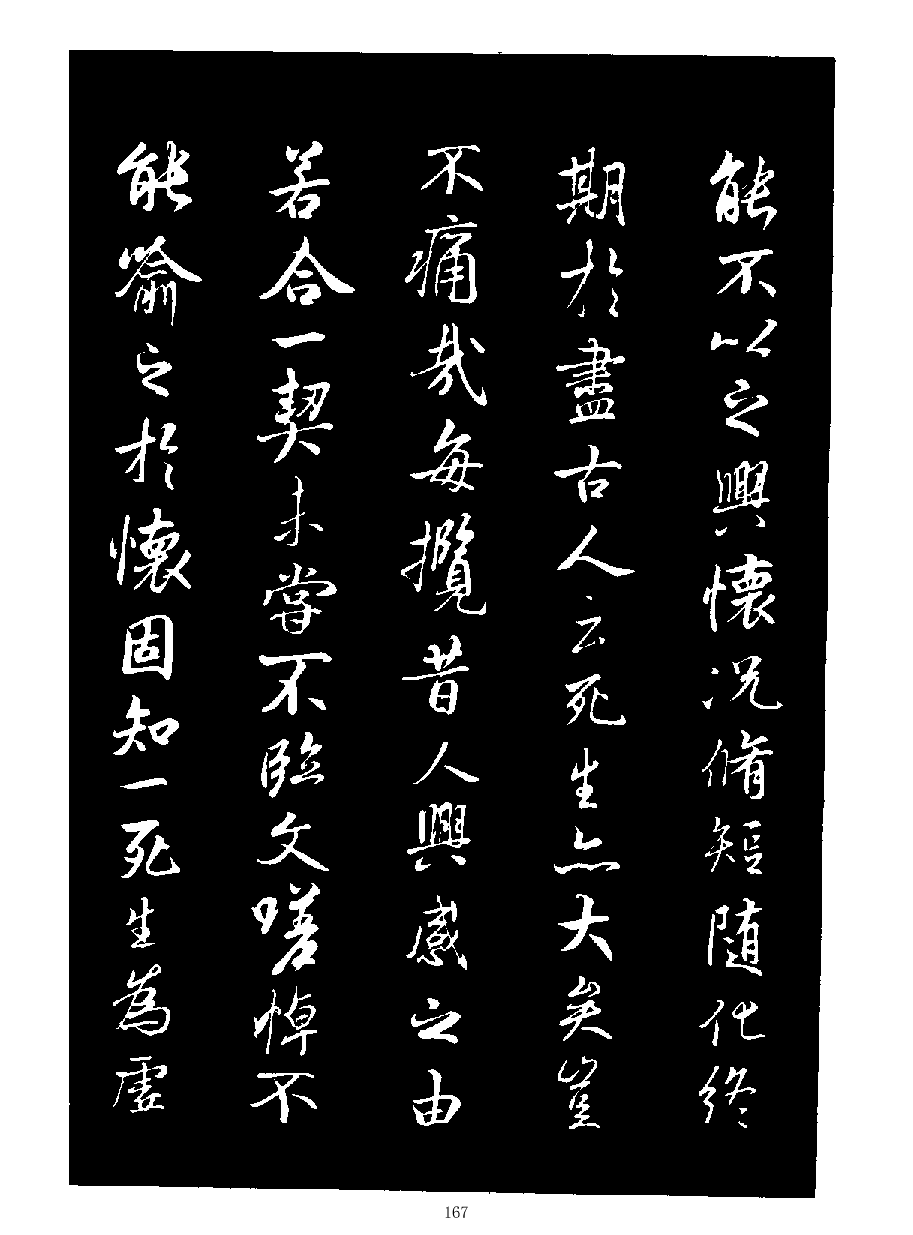 能不以之興懷況脩短隨化終
期於盡古人云死生亦大矣豈
不痛哉每攬昔人興感之由
若合一契未嘗不臨文嗟悼不
能喻之於懷固知一死生為虛
167